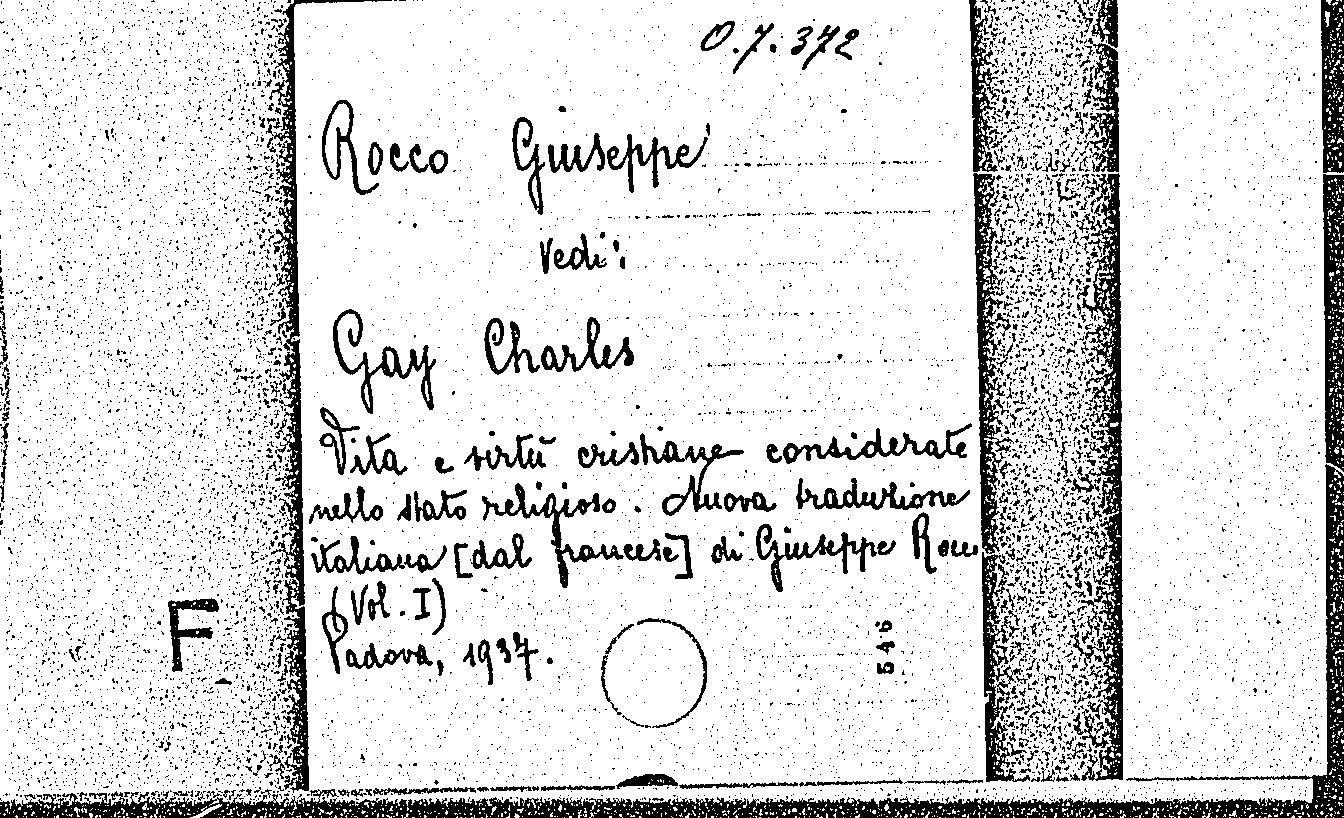 O.7.372
Rocco Giuseppe
Vedi:
Gay Charles
Vita e virtù cristiane considerate
nello stato religioso. Nuova traduzione
italiana [dal francese] di Giuseppe Rocco
(Vol. I)
Padova, 1937.
546
F